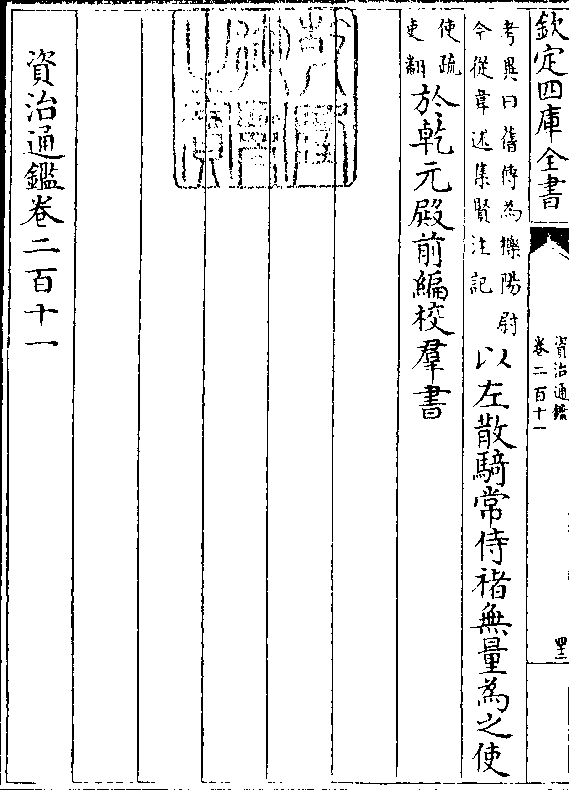 欽定四庫全書
資治通鑑
卷二百十一
考異曰舊傳為櫟陽尉
令從韋述集賢注記
以左散騎常侍褚無量為之使
使疏
吏翻
於乾元殿前編校羣書
資治通鑑卷二百十一